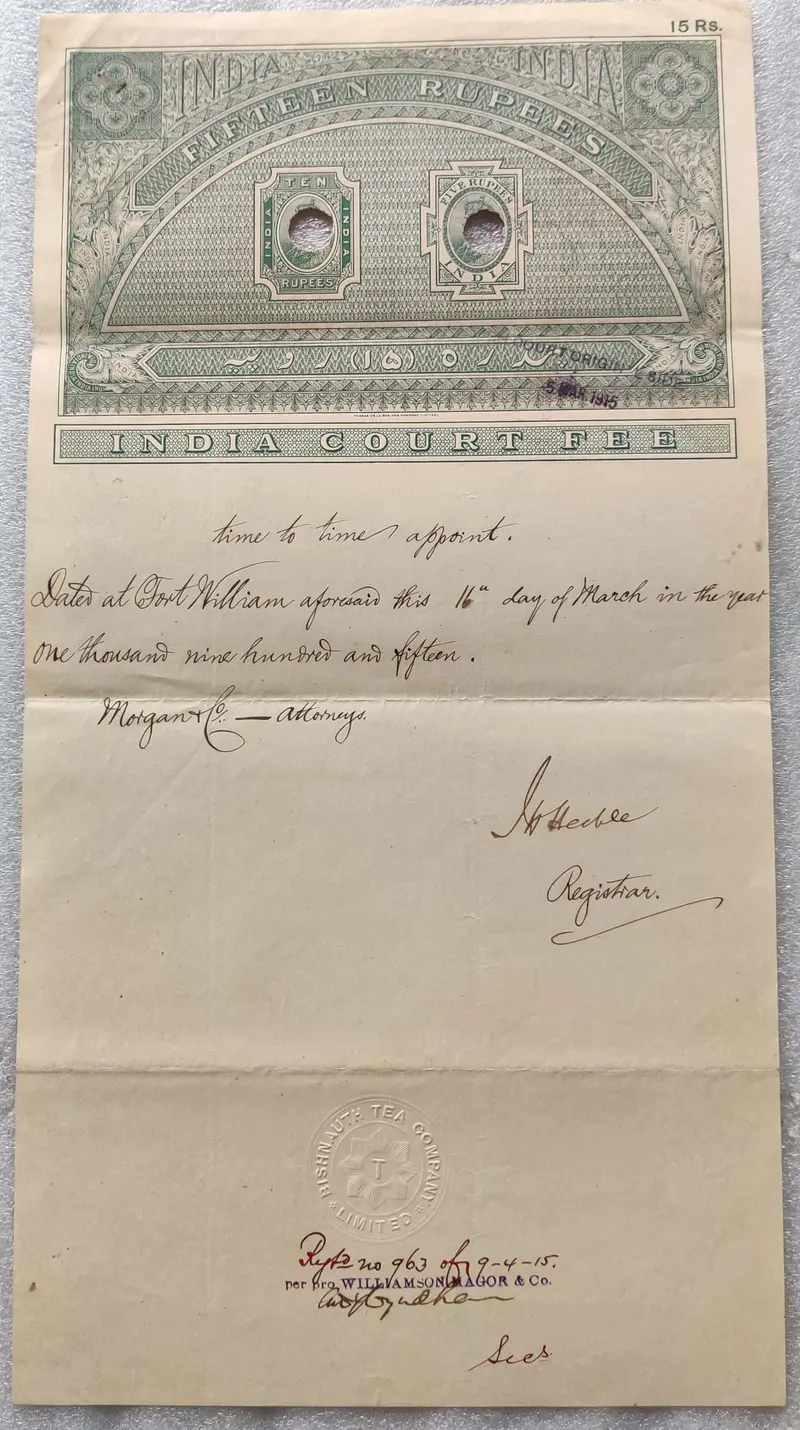 15 Rs.
INDIA INDIA
FIFTEEN RUPEES
TEN
INDIA INDIA
RUPEES
FIVE RUPEES
INDIA
(۱۵) روپیہ
COURT ORIGINAL SIDE
5 MAR 1915
THOMAS DE LA RUE AND COMPANY LIMITED
INDIA COURT FEE
time to time appoint.
Dated at Fort William aforesaid this 16th day of March in the year
one thousand nine hundred and fifteen.
Morgan & Co. — Attorneys.
Registrar.
BISHNAUTH TEA COMPANY
T
* LIMITED *
Regtd no 963 of 9-4-15.
per pro WILLIAMSON MAGOR & Co.
Secs